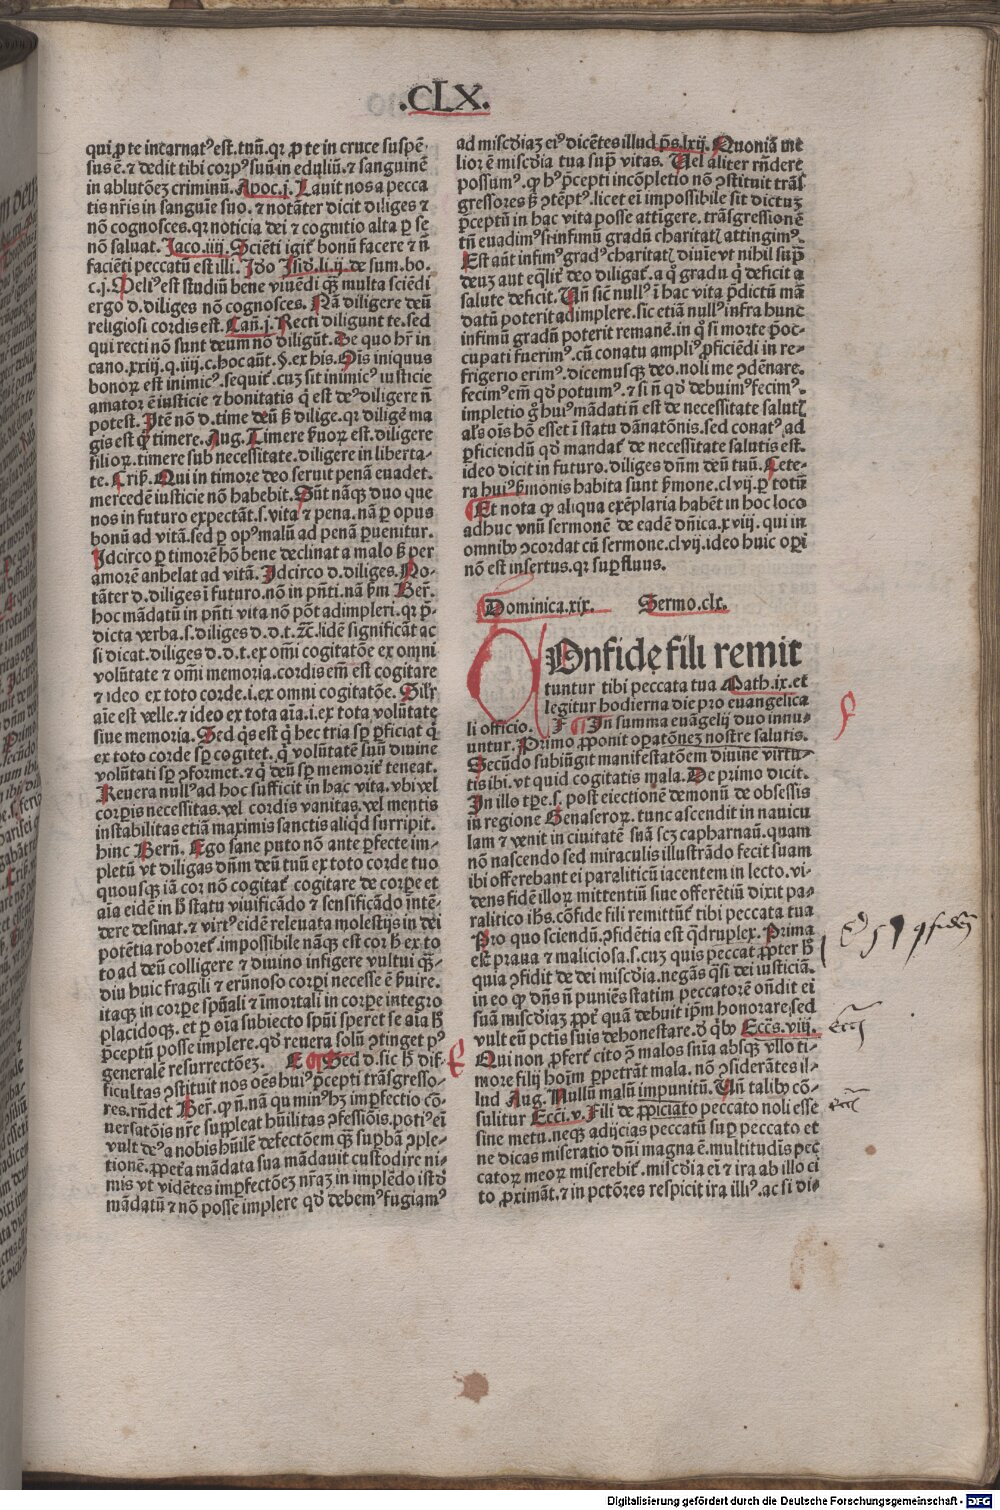 .CLX.
qui ꝓ te incarnatꝰ est. tuū. qꝛ ꝓ te in cruce suspē-
sus ē. ⁊ dedit tibi corpꝰ suū in eduliū. ⁊ sanguinē
in ablutōeꝫ criminū. Apoc.j. Lauit nos a pecca
tis nr̄is in sanguīe suo. ⁊ notāter dicit diliges ⁊
nō cognosces. qꝛ noticia dei ⁊ cognitio alta ꝑ se
nō saluat. Jaco.iiij. Sciēti igit᷑ bonū facere ⁊ nō
faciēti peccatū est illi. Jdo Jsid.li.ij.de sum.bo.
c.j. Meliꝰ est studiū bene viuēdi qꝫ multa sciēdi
ergo d. diliges nō cognosces. Nā diligere deū
religiosi cordis est. Can̄.j. Recti diligunt te. sed
qui recti nō sunt deum nō diligūt. de quo hr̄ in
cano.xxiij.q.iiij.c.hoc aūt. §.ex his. Qis iniquus
bonoꝝ est inimicꝰ. sequit᷑. cuꝫ sit inimicꝰ iusticie
amator ē iusticie ⁊ bonitatis q̄ est deꝰ diligere nō
potest. Jtē nō d. time deū sꝫ dilige. qꝛ diligē ma
gis est q̄ꝫ timere. Aug. Timere ẜuoꝝ est. diligere
filioꝝ. timere sub necessitate. diligere in liberta-
te. Crisꝰ. Qui in timore deo seruit penā euadet.
mercedē iusticie nō habebit. Sūt nāqꝫ duo que
nos in futuro expectāt. s. vita ⁊ pena. nā ꝑ opus
bonū ad vitā. sed ꝑ opꝰ malū ad penā ꝑuenitur.
Jdcirco ꝑ timorē hō bene declinat a malo sꝫ per
amorē anhelat ad vitā. Jdcirco d. diliges. No-
tāter d. diliges ī futuro. nō in pn̄ti. nā ẜm Ber̄.
hoc mādatū in pn̄ti vita nō pōt adimpleri. qꝛ p̄-
dicta verba. s. diliges d. d. t. ⁊c̄. Idē significāt ac
si dicat. diliges d. d. t. ex om̄i cogitatōe ex omni
volūtate ⁊ om̄i memoria. cordis em̄ est cogitare
⁊ ideo ex toto corde .i. ex omni cogitatōe. Sil̄r
aīe est velle. ⁊ ideo ex tota aīa .i. ex tota volūtate
siue memoria. Sed q̄s est q̄ hec tria sꝑ ꝑficiat q̄
ex toto corde sꝑ cogitet. q̄ volūtatē suū diuine
volūtati sꝑ ꝯformet. ⁊ q̄ deū sꝑ memorit᷑ teneat.
Reuera nullꝰ ad hoc sufficit in hac vita. vbi vel
corꝑis necessitas. vel cordis vanitas. vel mentis
instabilitas etiā maximis sanctis aliqd surripit.
hinc Bern̄. Ego sane puto nō ante ꝑfecte im-
pletū vt diligas dn̄m deū tuū ex toto corde tuo
quousqꝫ iā cor nō cogitat᷑ cogitare de corꝑe et
aīa eidē in hꝰ statu viuificādo ⁊ sensificādo intē-
dere desinat. ⁊ virtꝰ eidē releuata molestijs in dei
potētia roboret᷑. impossibile nāqꝫ est cor hꝰ ex to
to ad deū colligere ⁊ diuino infigere vultui qꝫ-
diu huic fragili ⁊ erūnoso corꝑi necesse ē ẜuire.
itaqꝫ in corꝑe spūali ⁊ īmortali in corꝑe integro
placidoqꝫ. et ꝑ oīa subiecto spūi speret se aīa hꝰ
p̄ceptū posse implere. qd reuera solū ꝯtinget pꝰ
generalē resurrectōeꝫ. Sed d. sic hꝰ dif-
ficultas ꝯstituit nos oēs huiꝰ p̄cepti trāsgresso-
res. rn̄det Ber̄. ꝙ n̄. nā qu minꝰ hꝫ imꝑfectio cō-
uersatōis nr̄e suppleat hūilitas ꝯfessiōis. potiꝰ ei
vult deꝰ a nobis hūilē defectōem qꝫ suꝑbā ꝯple-
tionē. ꝓpterea mādata sua mādauit custodire ni-
mis vt vidētes imꝑfectōeꝫ nr̄aꝫ in implēdo istd
mādatū ⁊ nō posse implere qd debemꝰ fugiamꝰ
ad miscdiaꝫ eiꝰ dicētes illud ps̄.lxij. Quoniā me
lior ē miscdia tua suꝑ vitas. Uel aliter rn̄dere
possumꝰ. ꝙ hꝰ p̄cepti incōpletio nō ꝯstituit trās
gressores sꝫ ꝯtēptꝰ. licet ei impossibile sit dictuꝫ
p̄ceptū in hac vita posse attigere. trāsgressionē
tn̄ euadimꝰ si infimū gradū charitat᷑ attingimꝰ.
Est aūt infimꝰ gradꝰ charitat᷑ diuīe vt nihil suꝑ
deuꝫ aut eq̄lit᷑ deo diligat᷑. a q̄ gradu q̄ deficit a
salute deficit. Un̄ sicut nullꝰ ī hac vita p̄dictū mā
datū poterit adimplere. sic etiā nullꝰ infra hunc
infimū gradū poterit remanē. in q̄ si morte p̄oc-
cupati fuerimꝰ. cū conatu ampliꝰ ꝓficiēdi in re-
frigerio erimꝰ. dicemusqꝫ deo. noli me ꝯdēnare.
fecimꝰ em̄ qd potuimꝰ. ⁊ si nō qd debuimꝰ fecimꝰ.
impletio g̊ huiꝰ mādati nō est de necessitate salut᷑
al̄s oīs hō esset ī statu dānatōnis. sed conatꝰ ad
ꝑficiendū qd mandat᷑ de necessitate salutis est.
ideo dicit in futuro. diliges dn̄m deū tuū. Cete-
ra huiꝰ ẜmonis habita sunt ẜmone.clvij.ꝑ totū
Et nota ꝙ aliqua exēplaria habēt in hoc loco
adhuc vnū sermonē de eadē dn̄ica.xviij. qui in
omnibꝰ ꝯcordat cū sermone.clvij. ideo huic oꝑi
nō est insertus. qꝛ suꝑfluus.
Dominica.xix. Sermo.clx.
Onfide fili remit
tuntur tibi peccata tua Math.ix. et
legitur hodierna die pro euangelica
li officio. In summa euāgelij duo innu-
untur. Primo ꝓponit oꝑatōneꝫ nostre salutis.
Secūdo subiūgit manifestatōem diuine virtu-
tis ibi. vt quid cogitatis mala. De primo dicit.
In illo tꝑe. s. post eiectionē demonū de obsessis
in regione Genaseroꝝ. tunc ascendit in nauicu
lam ⁊ venit in ciuitatē suā scꝫ capharnaū. quam
nō nascendo sed miraculis illustrādo fecit suam
ibi offerebant ei paraliticū iacentem in lecto. vi-
dens fidē illoꝝ mittentiū siue offerētiū dixit pa-
ralitico ih̄s. cōfide fili remittūt᷑ tibi peccata tua
Pro quo sciendū. ꝯfidētia est q̄druplex. Prima
est praua ⁊ maliciosa. s. cuꝫ quis peccat ꝓpter hꝰ
quia ꝯfidit de dei miscdia. negās q̄si dei iusticiā.
in eo ꝙ dn̄s nō puniēs statim peccatorē ondit ei
suā miscdiaꝫ ꝓpt᷑ quā debuit ip̄m honorare. sed
vult eū pctīs suis dehonestare. d q̄bꝰ Eccs̄.viij.
Qui non ꝓfert᷑ cito ꝯ malos sn̄ia absqꝫ vllo ti-
more filij hoīm ꝑpetrāt mala. nō ꝯsiderātes il-
lud Aug. Nullū malū impunitū. Un̄ talibꝰ cō-
sulitur Eccī.v. Fili de ꝓpiciato peccato noli esse
sine metu. neqꝫ adijcias peccatū suꝑ peccato et
ne dicas miseratio dn̄i magna ē. multitudīs pec
catoꝝ meoꝝ miserebit᷑. miscdia ei ⁊ ira ab illo ci
to ꝓximāt. ⁊ in pctōres respicit ira illiꝰ. ac si di-
Digitalisierung gefördert durch die Deutsche Forschungsgemeinschaft - DFG